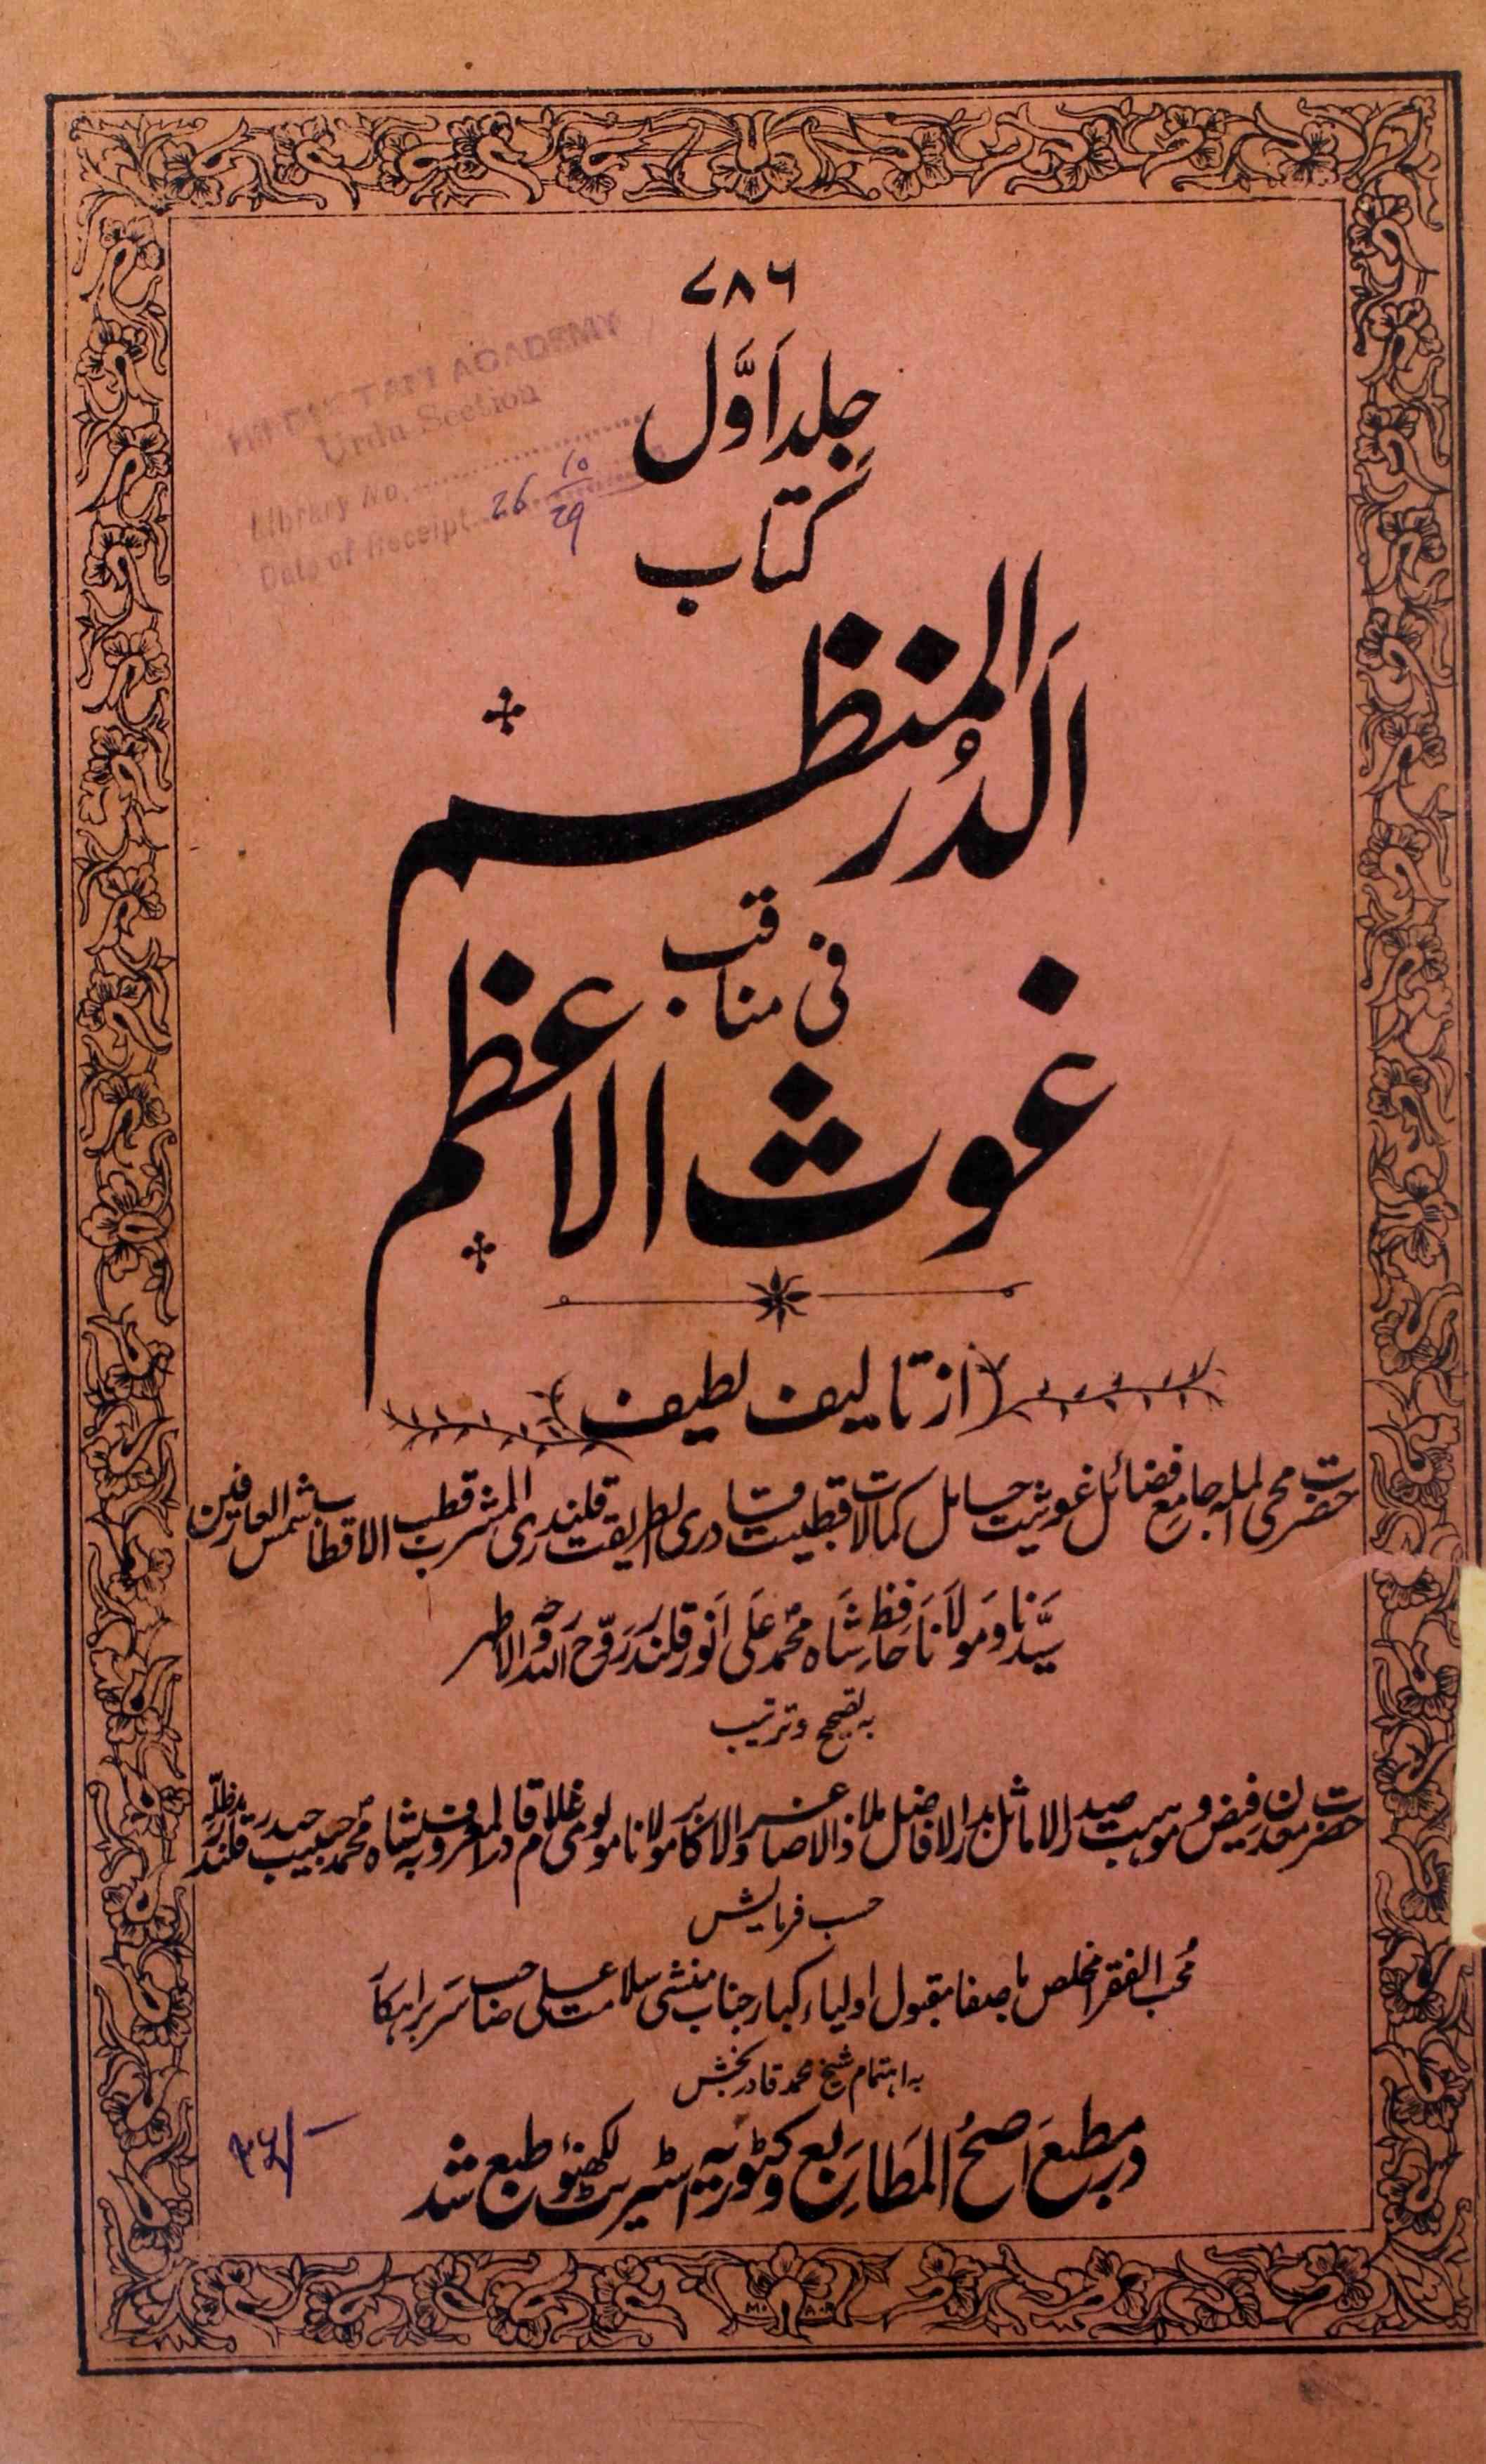 ۷۸۶
جلد اَوَّل
کتاب
الدُر المنظم
فی مناقب
غوث الاعظم
از تالیف لطیف
حضرت محی الملہ جامع فضائل غوثیت حامل کمالات قطبیت قادری الطریقت قلندری المشرب قطب الاقطاب شمس العارفین
سیدنا ومولانا حافظ شاہ محمد علی انور قلندر روّح اللہ روحہ الاطہر
بہ تصحیح و ترتیب
حضرت معدن فیض وموہبت صدر الاماثل بدر الافاضل ملاذ الاصاغر والاکابر مولانا مولوی غلام قادر المعروف بہ شاہ محمد حبیب حیدر قلندر مدظلہ
حسب فرمایش
محب الفقرا مخلص باصفا مقبول اولیاء کبار جناب منشی سلامت علی صاحب سربراہکار
بہ اہتمام شیخ محمد قادر بخش
در مطبع اصح المطابع وکٹوریہ اسٹریٹ لکھنؤ طبع شد
HINDUSTANI ACADEMY
Urdu Section
Library No.
Date of Receipt 26 10/29
M. A. R